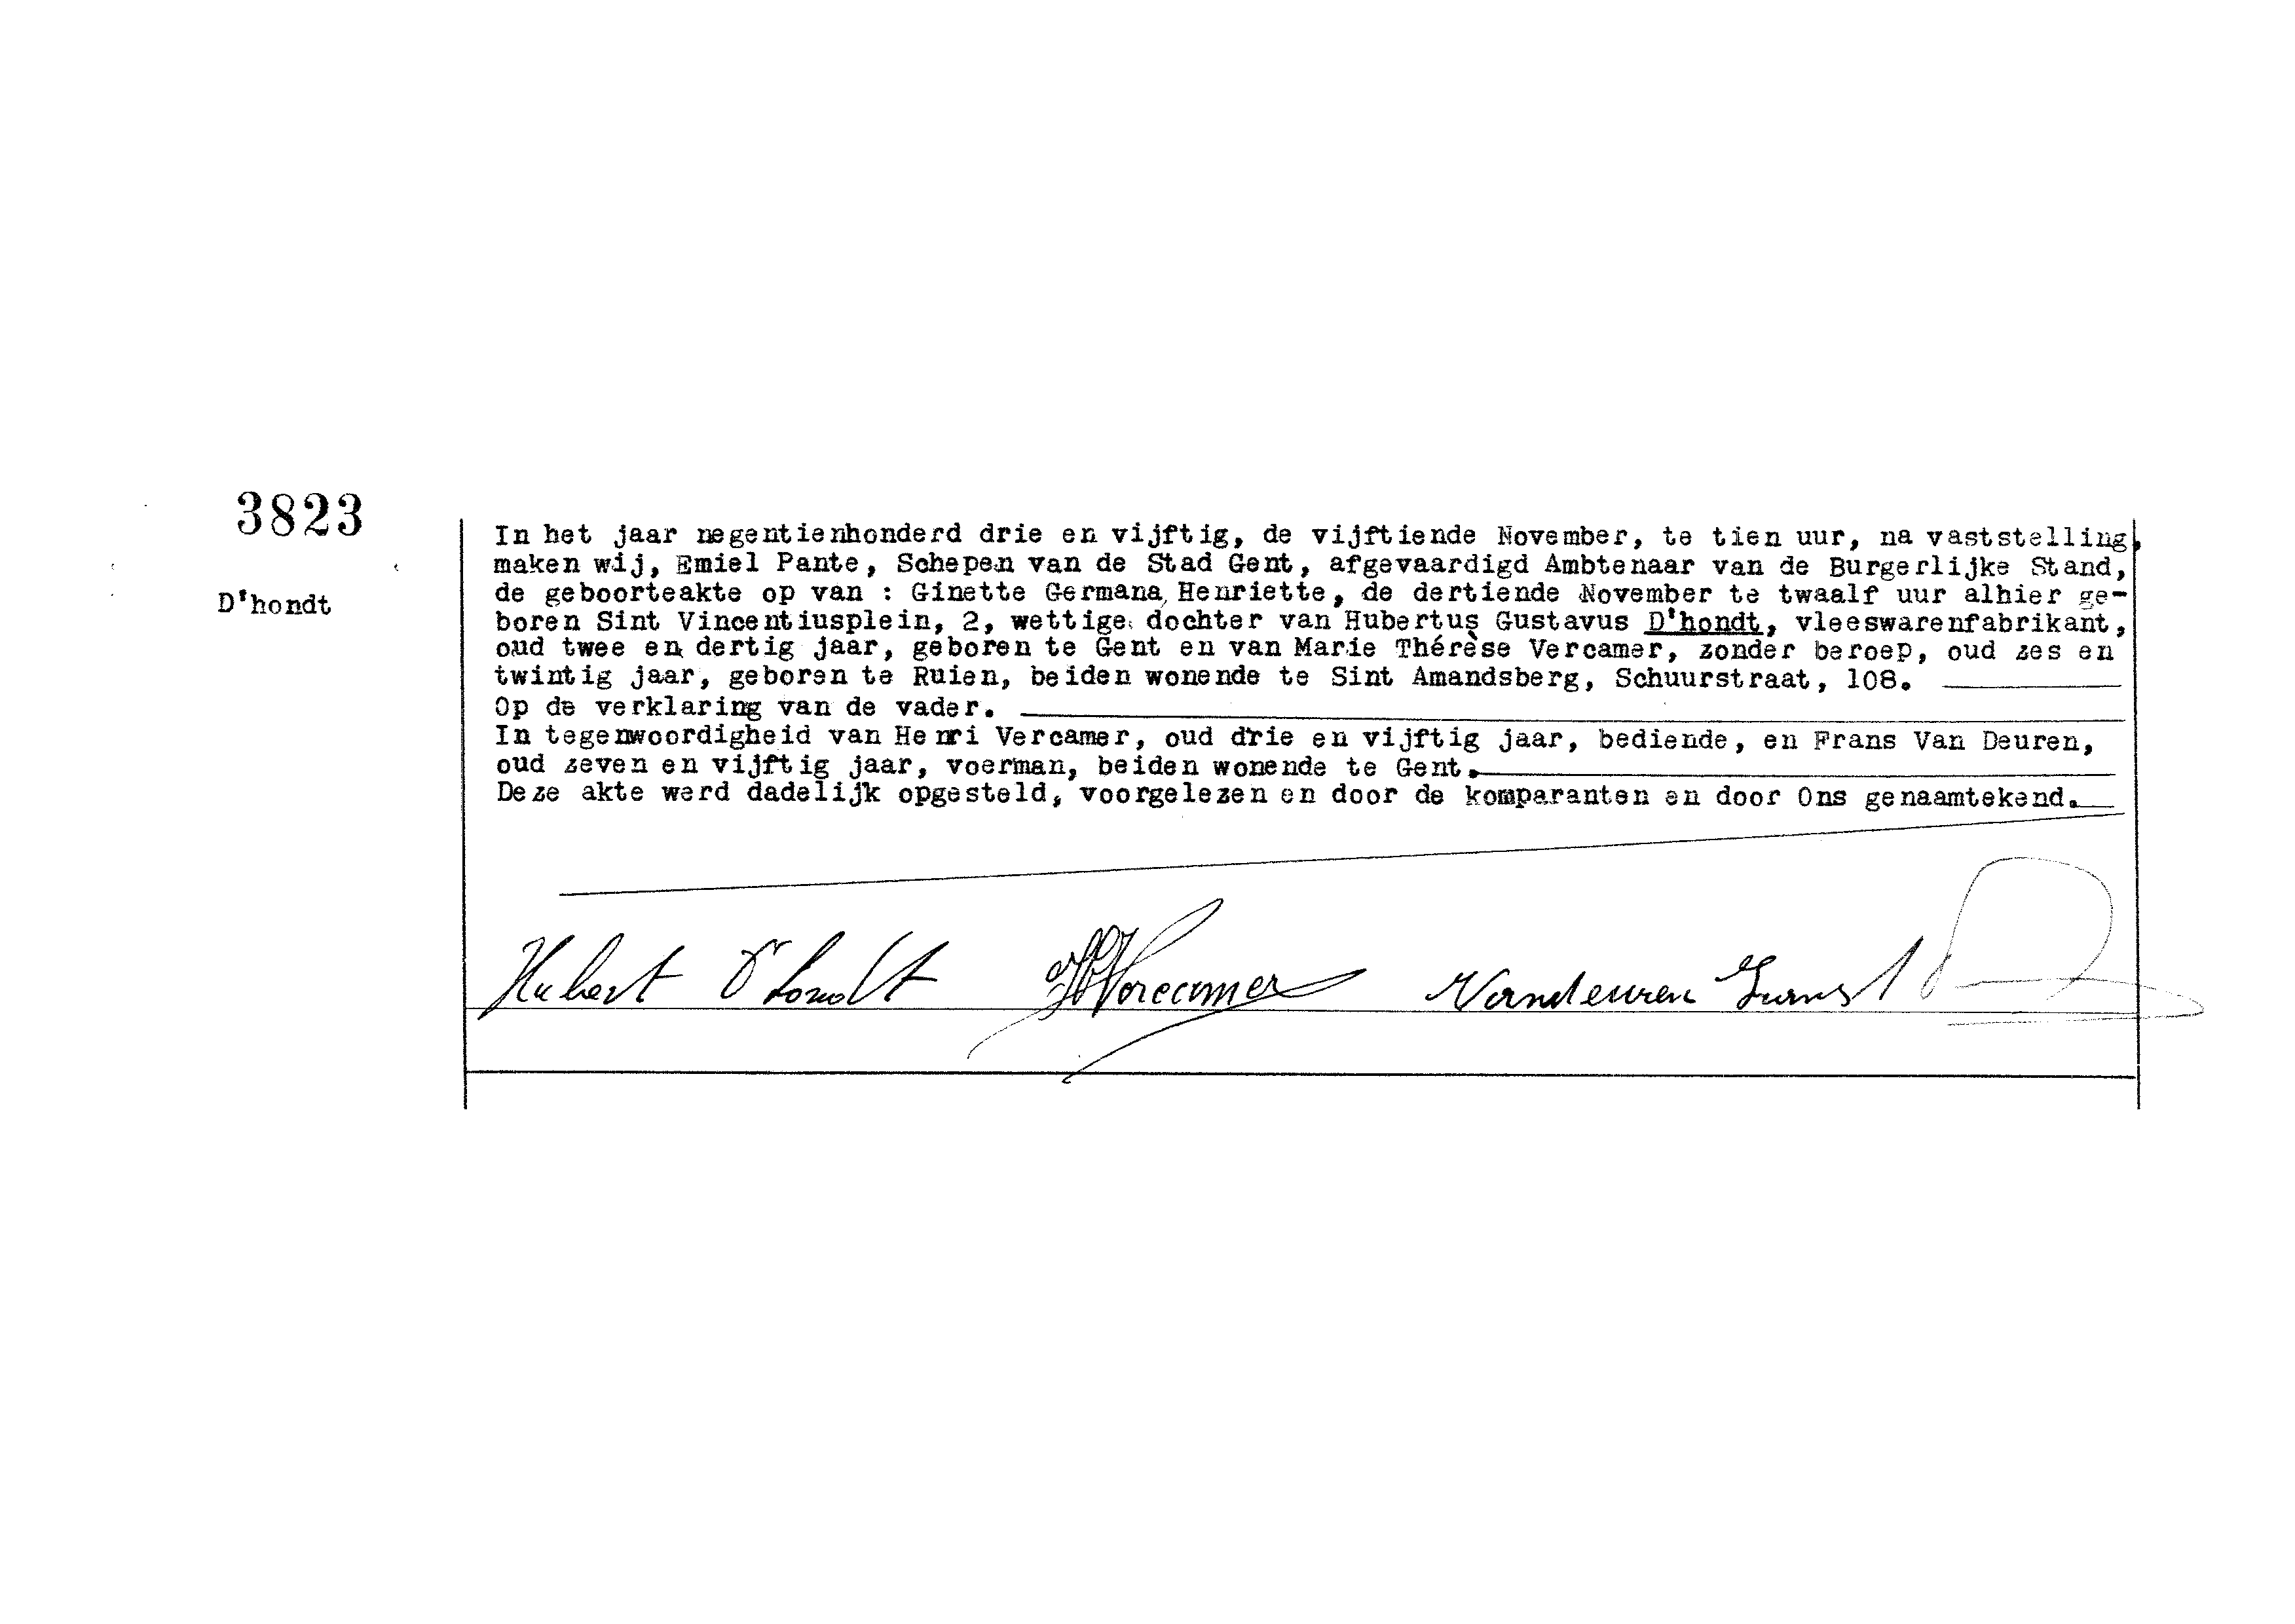 3823
D'hondt
In het jaar negentienhonderd drie en vijftig, de vijftiende November, te tien uur, na vaststelling,
maken wij, Emiel Pante, Schepen van de Stad Gent, afgevaardigd Ambtenaar van de Burgerlijke Stand,
de geboorteakte op van : Ginette Germana, Henriette, de dertiende November te twaalf uur alhier ge-
boren Sint Vincentiusplein, 2, wettige dochter van Hubertus Gustavus D'hondt, vleeswarenfabrikant,
oud twee en dertig jaar, geboren te Gent en van Marie Thérèse Vercamer, zonder beroep, oud zes en
twintig jaar, geboren te Ruien, beiden wonende te Sint Amandsberg, Schuurstraat, 108.
Op de verklaring van de vader.
In tegenwoordigheid van Henri Vercamer, oud drie en vijftig jaar, bediende, en Frans Van Deuren,
oud zeven en vijftig jaar, voerman, beiden wonende te Gent.
Deze akte werd dadelijk opgesteld, voorgelezen en door de komparanten en door Ons genaamtekend.
Hubert D'hondt HVercamer Vandeuren Frans